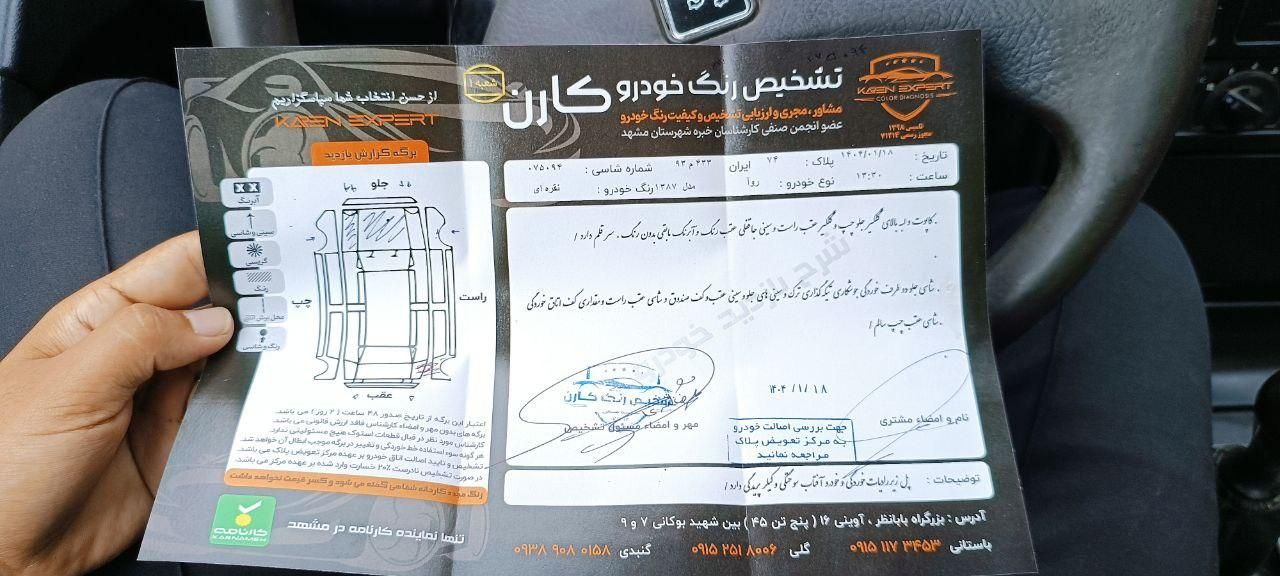 تشخیص رنگ خودرو کارن
شعبه ۱
مشاور، مجری و ارزیابی تشخیص و کیفیت رنگ خودرو
عضو انجمن صنفی کارشناسان خبره شهرستان مشهد
KAREN EXPERT
COLOR DIAGNOSIS
تاسیس ۱۳۹۸
مجوز رسمی ۷۱۳۱۴
از حسن انتخاب شما سپاسگزاریم
KAREN EXPERT
تاریخ : ۱۴۰۴/۰۱/۱۸ پلاک : ۷۴ ایران ۴۳۳ م ۹۳ شماره شاسی : ۰۷۵۰۹۴
ساعت : ۱۳:۳۰ نوع خودرو : روآ مدل ۱۳۸۷ رنگ خودرو : نقره ای
. کاپوت و لبه بالای گلگیر جلو چپ و گلگیر عقب راست و سینی جاقفلی عقب رنگ و آبرنگ مابقی بدون رنگ . سر قلم دارد /
. شاسی جلو دو طرف خوردگی جوشکاری تیکه گذاری ترک و سینی های جلو و سینی عقب و کف صندوق و شاسی عقب راست و مقداری کف اتاق خوردگی
. شاسی عقب چپ سالم /
شرح بازدید خودرو
۱۴۰۴/۱/۱۸
نام و امضاء مشتری
جهت بررسی اصالت خودرو
به مرکز تعویض پلاک
مراجعه نمائید
تشخیص رنگ کارن
مهر و امضاء مسئول تشخیص
توضیحات : پل زیر رادیات خوردگی و خودرو آفتاب سوختگی و کیلر پریدگی دارد /
برگه گزارش بازدید
آبرنگ
سینی و شاسی
گریسی
رنگ
محل برش اتاق
رنگ و شاسی
جلو
چپ
راست
عقب
اعتبار این برگه از تاریخ صدور ۴۸ ساعت ( ۲ روز ) می باشد.
برگه های بدون مهر و امضاء کارشناس فاقد ارزش قانونی می باشد.
کارشناس مورد نظر در قبال قطعات استوک هیچ مسئولیتی ندارد.
هر گونه سوء استفاده خط خوردگی و تغییر در برگه موجب ابطال آن خواهد شد.
تشخیص و تایید اصالت اتاق خودرو بر عهده مرکز تعویض پلاک می باشد.
در صورت تشخیص نادرست ۲۰% خسارت وارد شده بر عهده مرکز می باشد.
رنگ مجدد کارخانه شفاهی گفته می شود و کسر قیمت نخواهد داشت
کارنامه
KARNAMEH
تنها نماینده کارنامه در مشهد
آدرس : بزرگراه بابانظر ، آوینی ۱۶ ( پنج تن ۴۵ ) بین شهید بوکانی ۷ و ۹
باستانی ۰۹۱۵ ۱۱۷ ۳۴۵۳ گلی ۰۹۱۵ ۲۵۱ ۸۰۰۶ گنبدی ۰۹۳۸ ۹۰۸ ۰۱۵۸